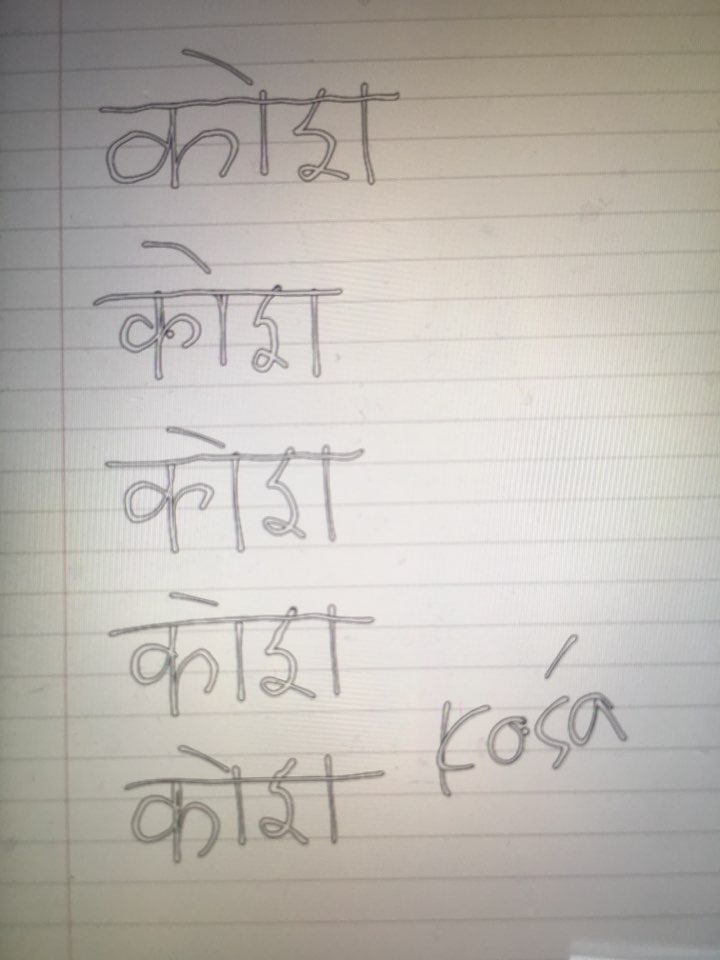 कोश
कोश
कोश
कोश
कोश
kośa